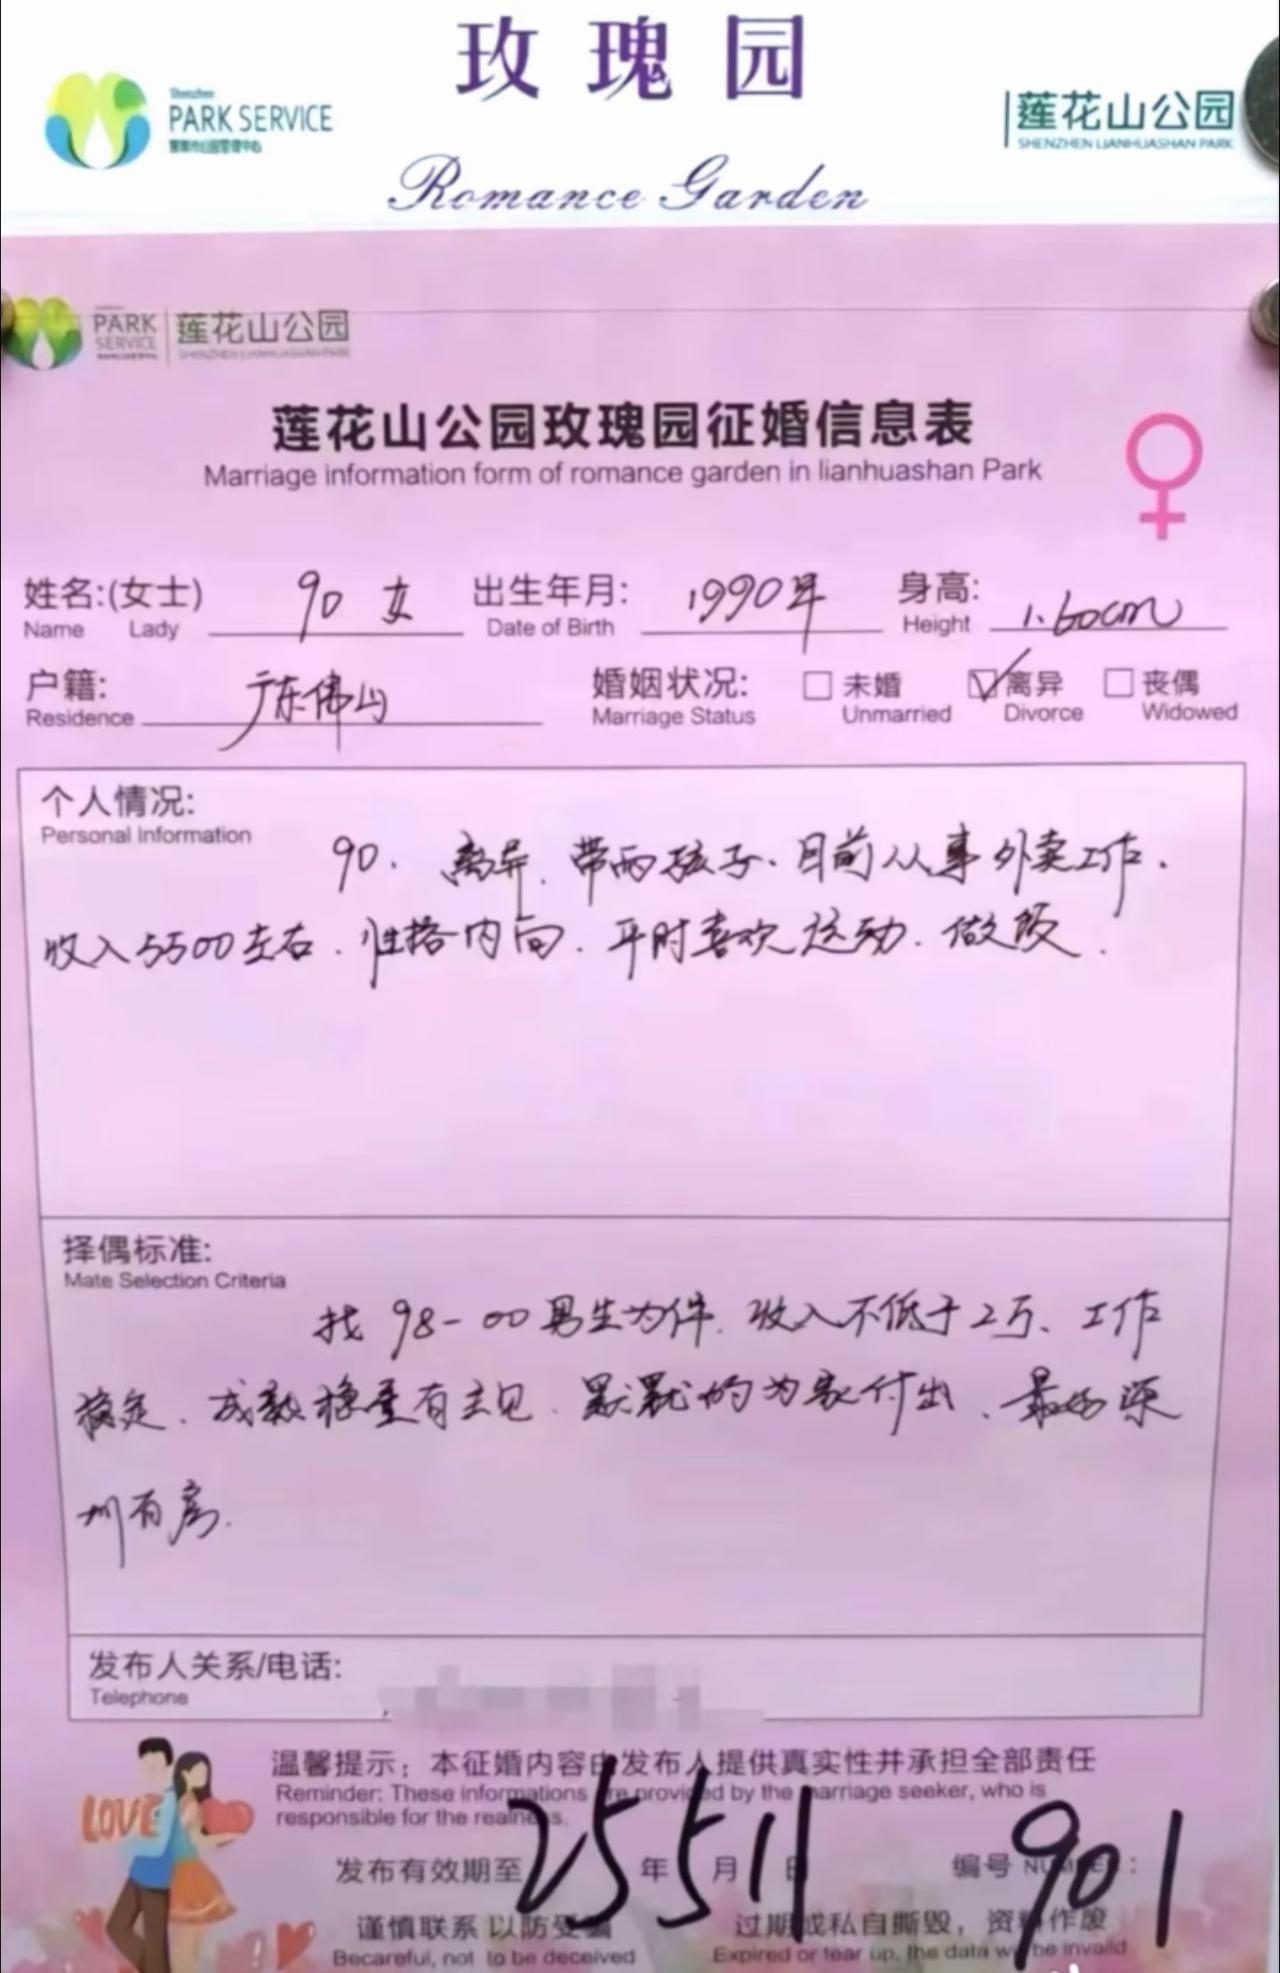 玫瑰园
Shenzhen
PARK SERVICE
深圳市公园管理中心
莲花山公园
SHENZHEN LIANHUASHAN PARK
Romance Garden
PARK
SERVICE
莲花山公园
SHENZHEN LIANHUASHAN PARK
莲花山公园玫瑰园征婚信息表
Marriage information form of romance garden in lianhuashan Park
姓名:(女士) 90 女 出生年月: 1990年 身高: 1.60cm
Name Lady Date of Birth Height
户籍: 广东佛山 婚姻状况: 未婚 离异 丧偶
Residence Marriage Status Unmarried Divorce Widowed
个人情况:
Personal Information
90. 离异. 带两孩子. 目前从事外卖工作.
收入5500左右. 性格内向. 平时喜欢运动. 做饭.
择偶标准:
Mate Selection Criteria
找98-00男生为伴. 收入不低于2万、工作
稳定. 成熟稳重有主见. 默默的为家付出、最好深
圳有房.
发布人关系/电话:
Telephone
温馨提示：本征婚内容由发布人提供真实性并承担全部责任
Reminder: These informations are provided by the marriage seeker, who is
responsible for the realness.
LOVE
发布有效期至 25 年 5 月 11 日 编号 NUMBER: 901
谨慎联系 以防受骗 过期或私自撕毁，资料作废
Becareful, not to be deceived Expired or tear up, the data will be invalid